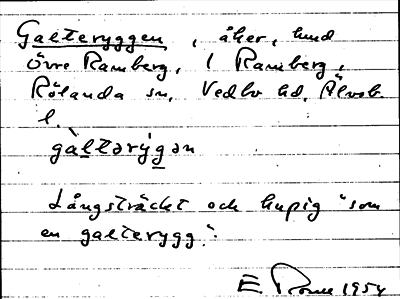 Galteryggen, åker, hmd
Övre Ramberg, 1 Ramberg,
Rölanda sn, Vedbo hd, Älvsb.
l.
gàltərýgən
Långsträckt och kupig "som
en galterygg".
E 1954